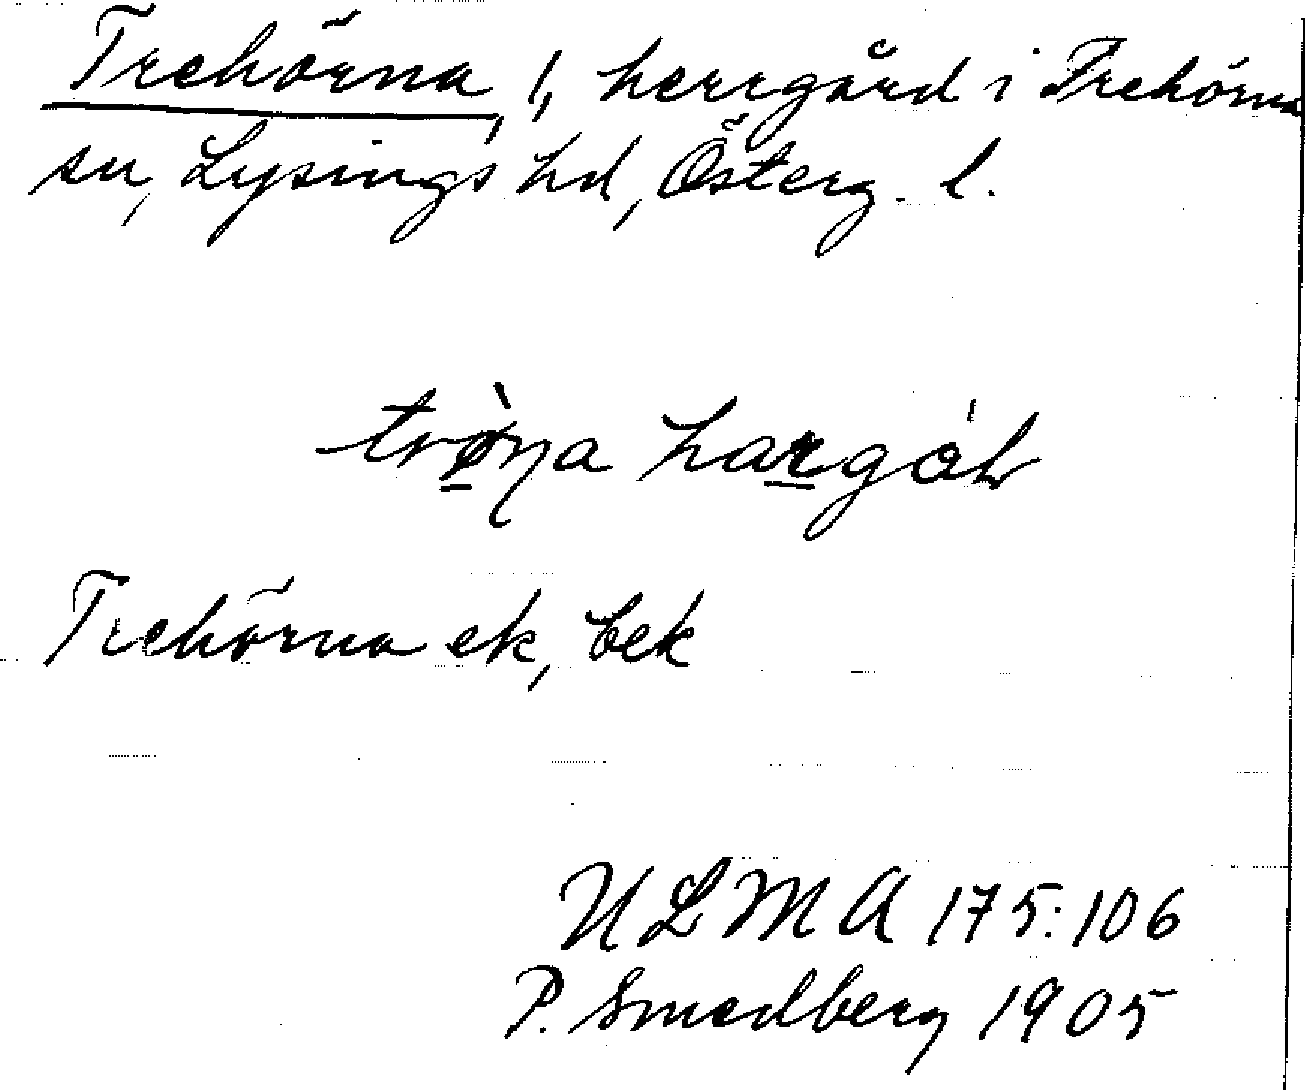 Trehörna, 1, herrgård i Trehörna
sn, Lysings hd, Österg. l.
trø̱̀ŋa ha̱rgáḷ
Trehörna ek, bek
ULMA 175:106
P. Smedberg 1905